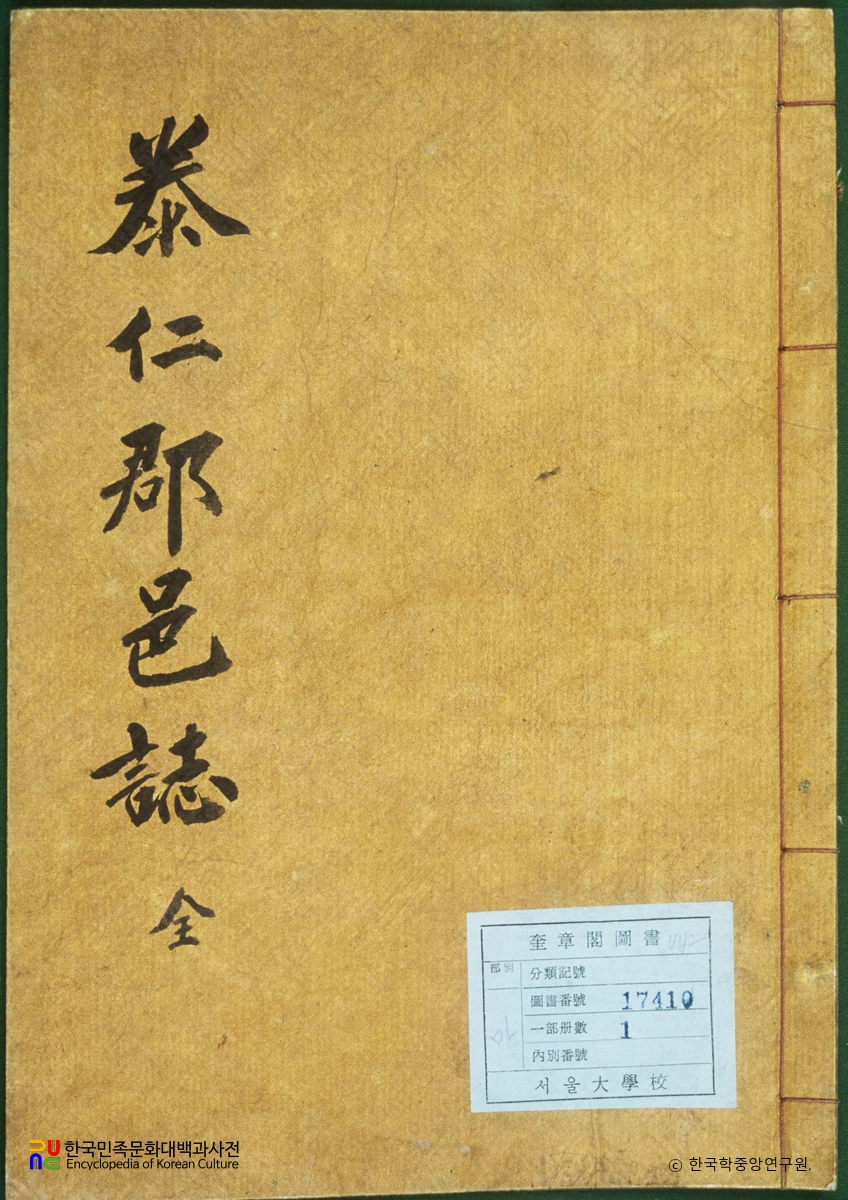 泰仁郡邑誌 全
奎章閣圖書
部別
分類記號
圖書番號 17410
一部册數 1
內別番號
서울大學校
한국민족문화대백과사전
Encyclopedia of Korean Culture
© 한국학중앙연구원.